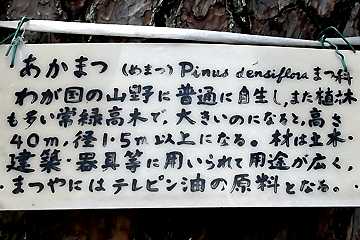 あかまつ (めまつ) Pinus densiflora まつ科
わが国の山野に普通に自生し、また植木
も多い常緑高木で、大きいのになると、高さ
40m,径1.5m以上になる。材は土木・
建築・器具等に用いられて用途が広く、
まつやにはテレピン油の原料となる。